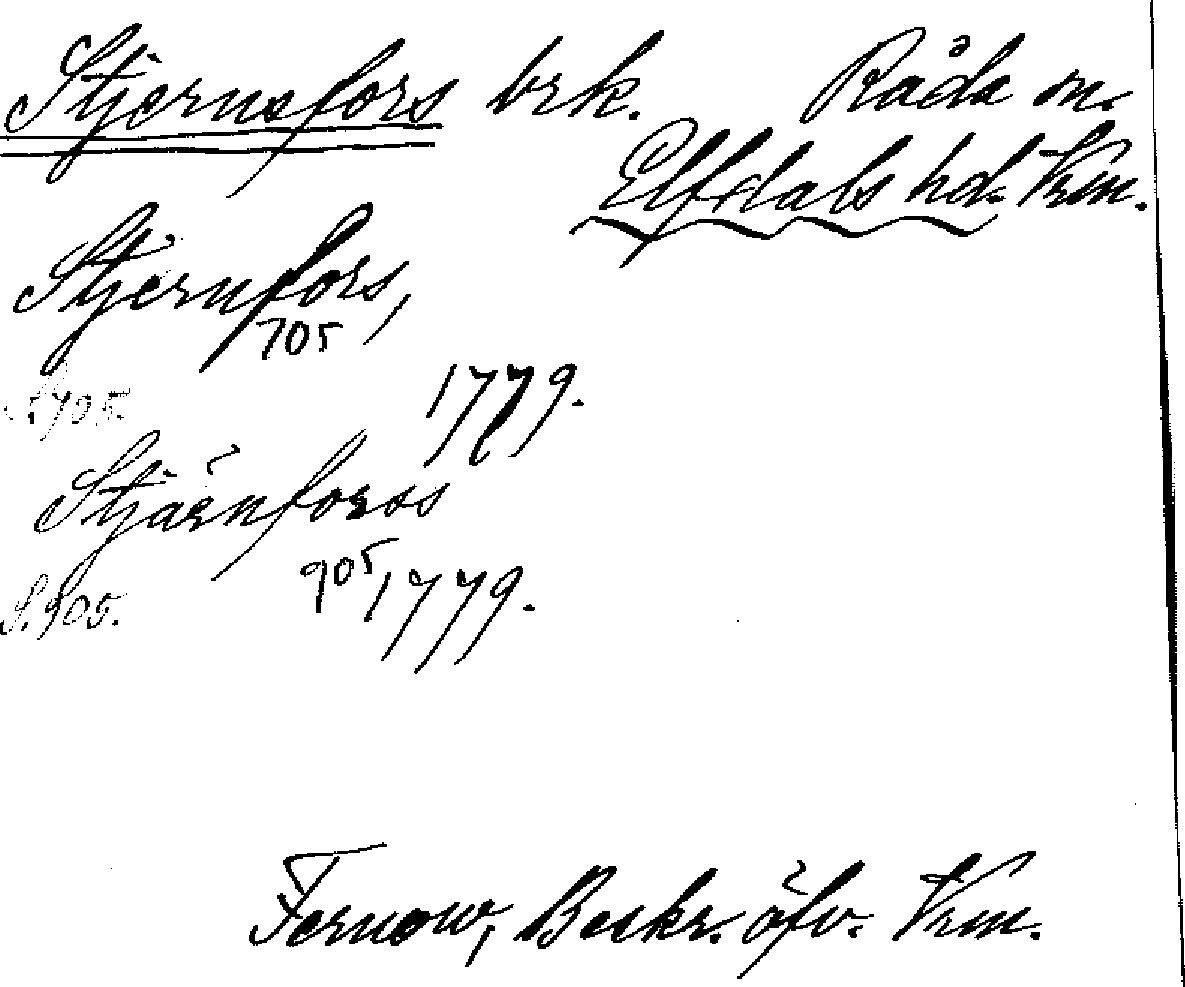 Stjernsfors brk. Råda sn.
Elfdals hd. Vrm.
Stjernfors,
705
S. 705. 1779.
Stjärnforss
905 1779.
S. 905.
Fernow, Beskr. öfv. Vrm.